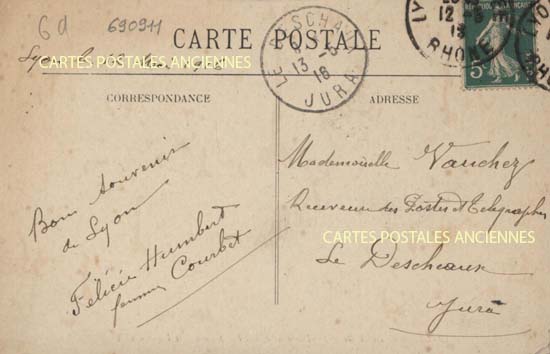 6d 690911
CARTE POSTALE
Lyon
CARTES POSTALES ANCIENNES
LE DESCHAUX
13 - 6
16
JURA
LYON
12
13
RHONE
5
CORRESPONDANCE
ADRESSE
Bon souvenir
de Lyon
Félicie Humbert
femme Courbet
Mademoiselle Vauchez
Receveuse des Postes et Telegraphes
CARTES POSTALES ANCIENNES
Le Descheaux
Jura